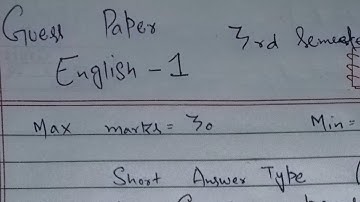 Guess Paper 3rd Semeste
English - 1
Max marks = 30 Min =
Short Answer Type (